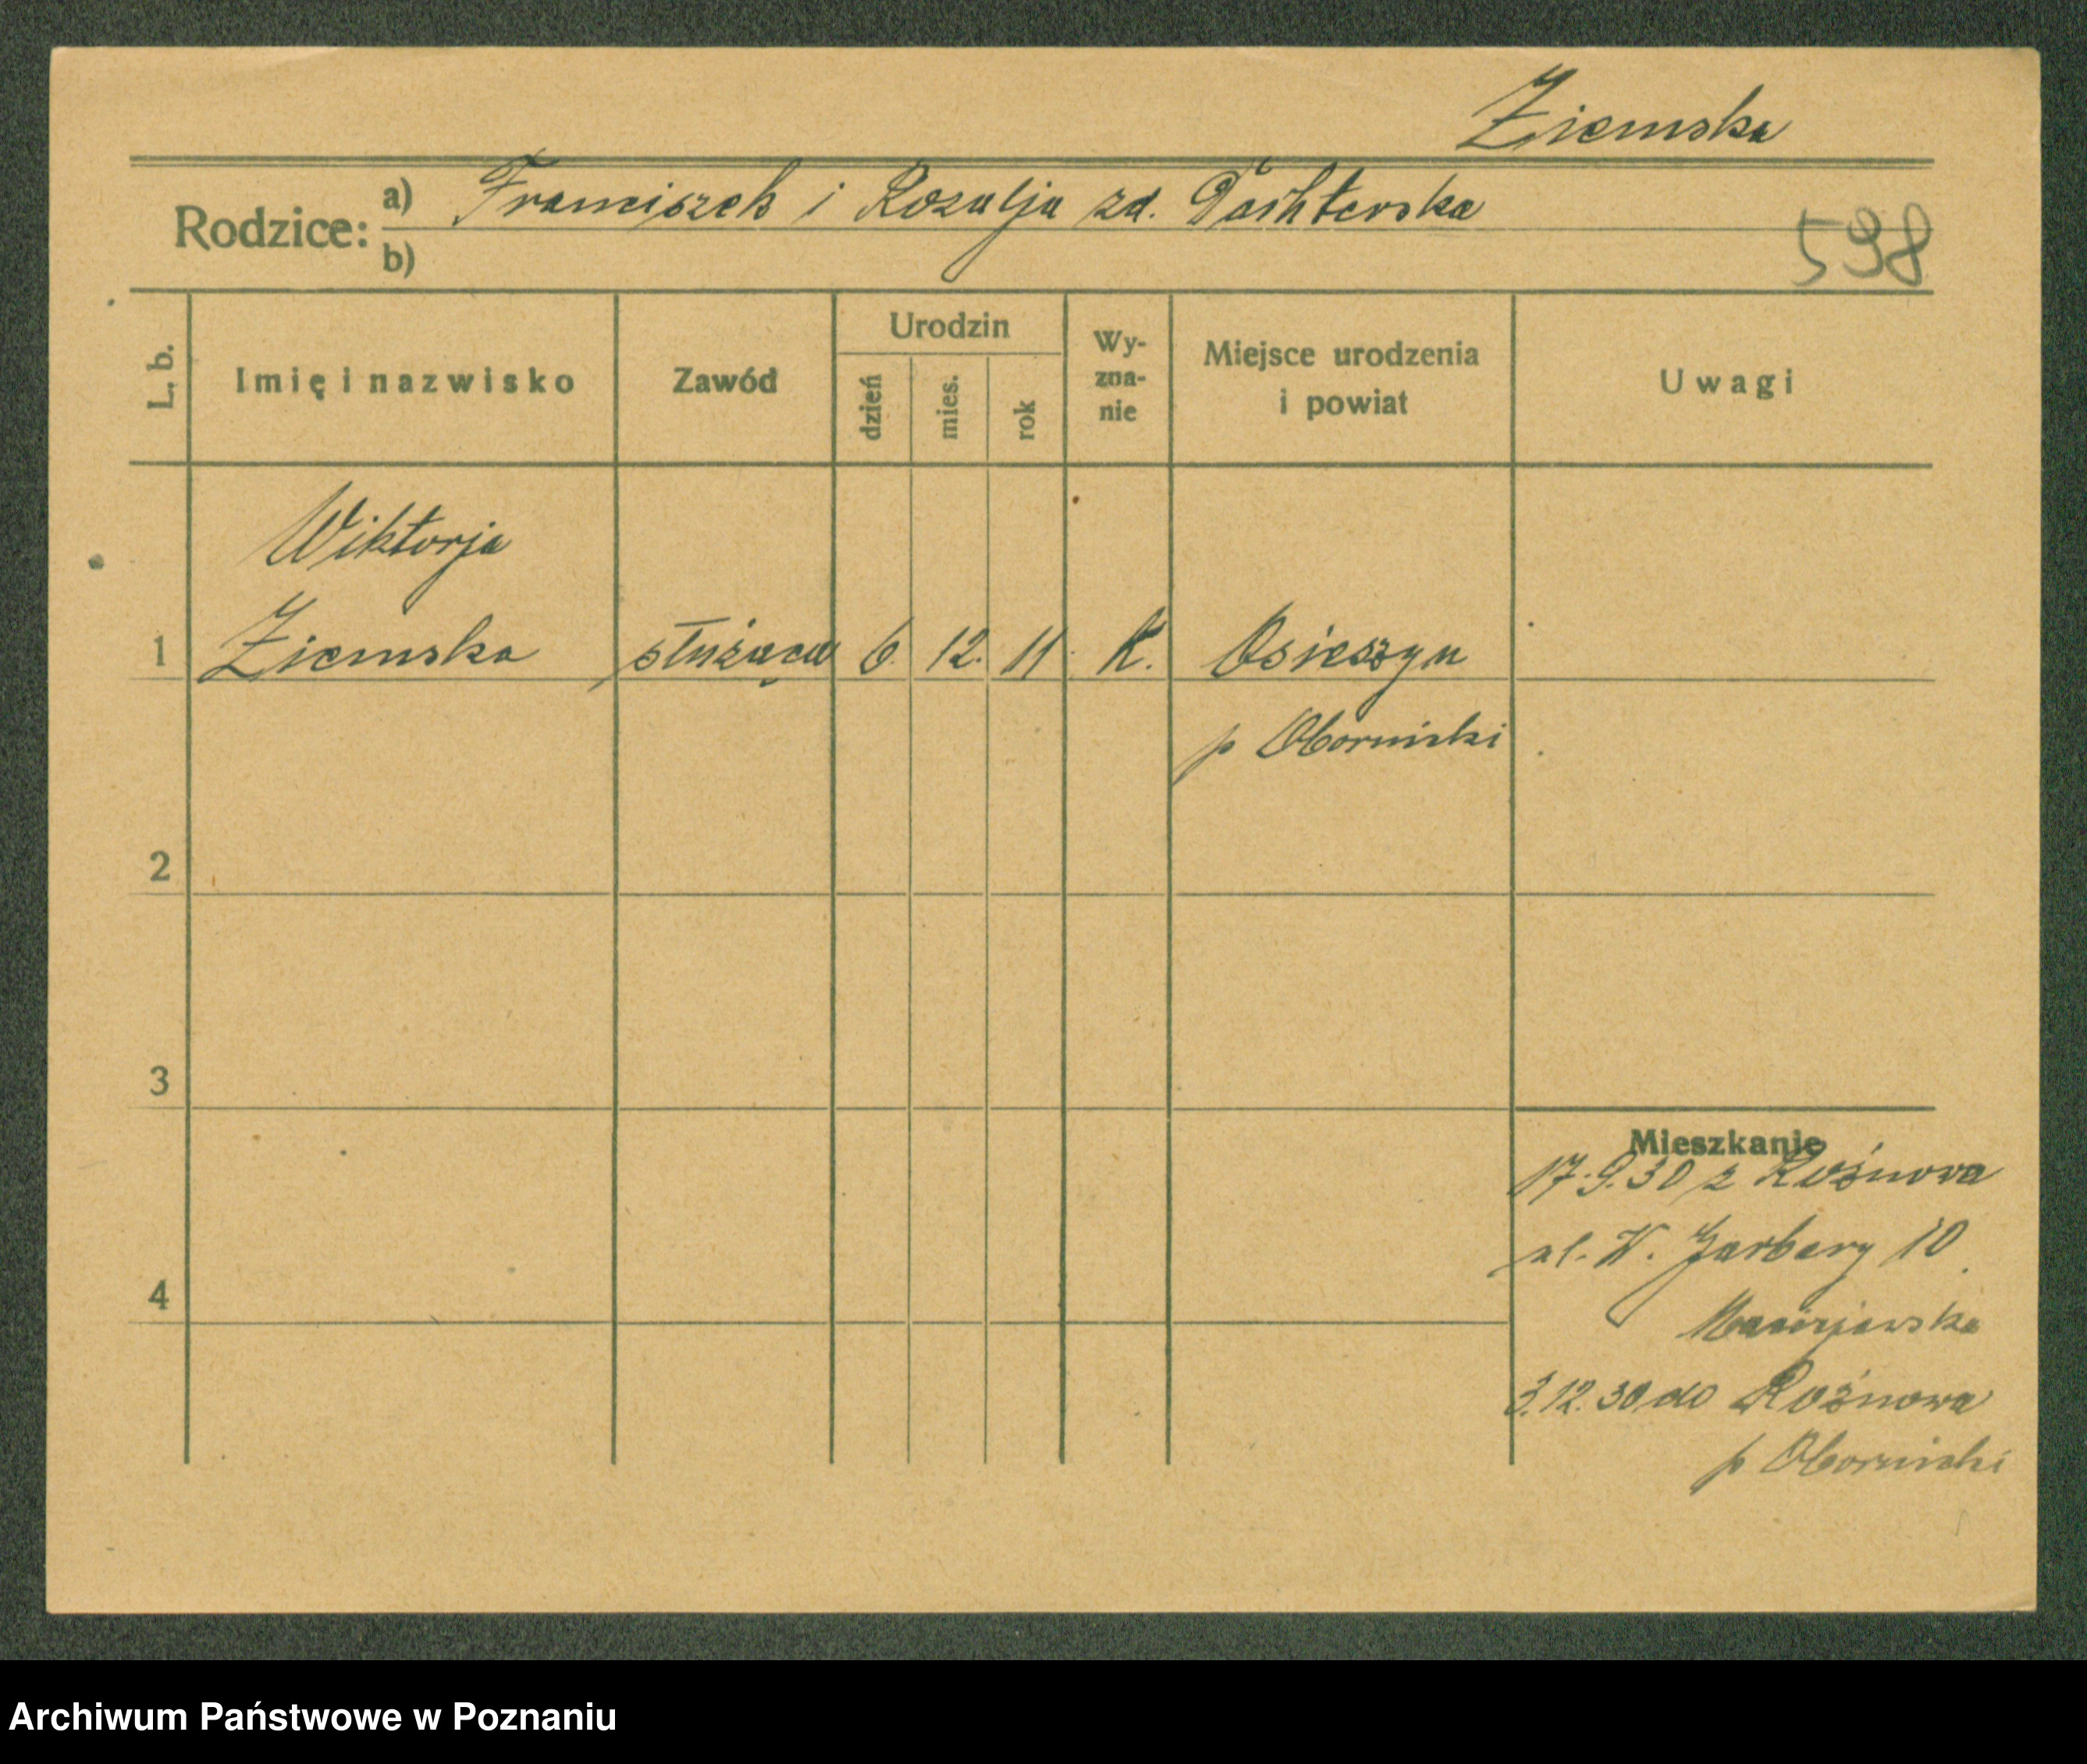 Ziemska
Rodzice: a) Franciszek i Rozalja zd.
b)
598
L. b. Imię i nazwisko Zawód Urodzin dzień mies. rok Wy-zna-nie Miejsce urodzenia i powiat Uwagi
Wiktorja
1 Ziemska służąca 6. 12. 11. K. Osieszyn
p Obornicki
2
3
Mieszkanie
17.9.30 z Rożnowa
ul. W. Garbary 10
4
Maciejewska
3.12.30 do Rożnowa
p Obornicki
Archiwum Państwowe w Poznaniu